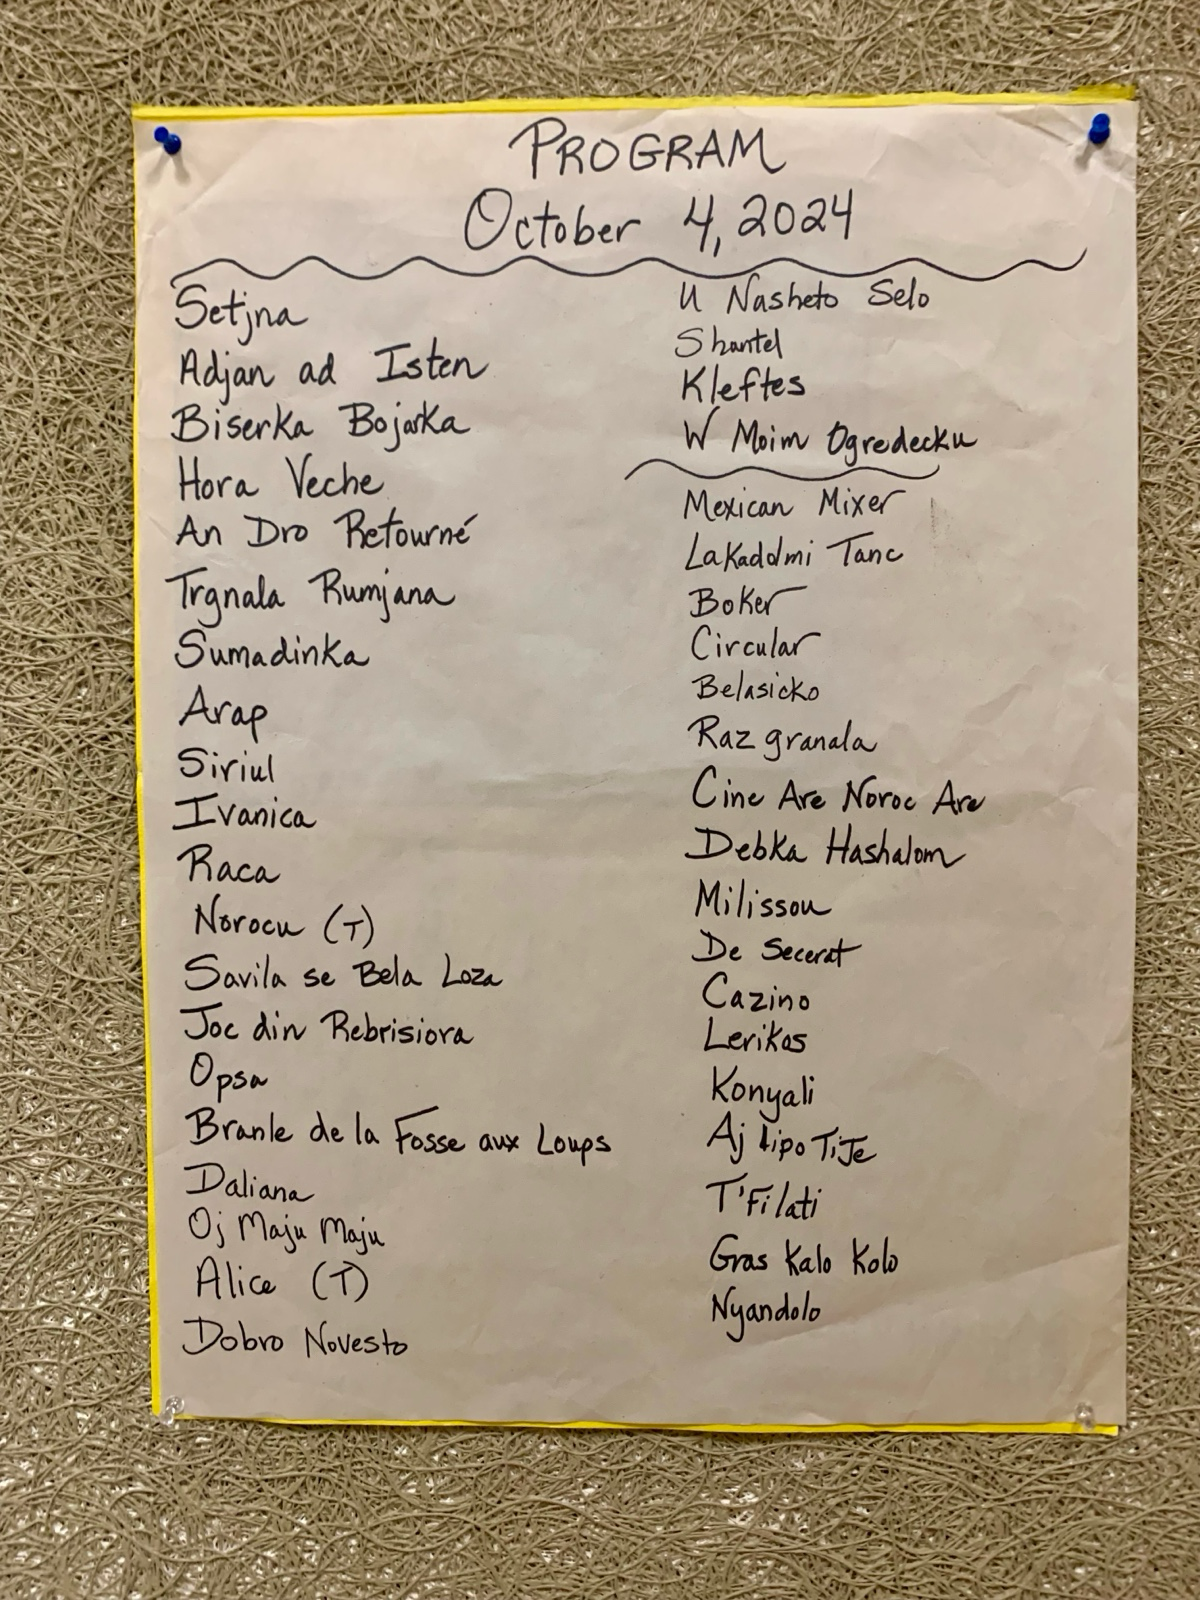 PROGRAM
October 4, 2024
Setjna
Adjan ad Isten
Biserka Bojarka
Hora Veche
An Dro Retourné
Trgnala Rumjana
Sumadinka
Arap
Siriul
Ivanica
Raca
Norocu (T)
Savila se Bela Loza
Joc din Rebrisiora
Opsa
Branle de la Fosse aux Loups
Daliana
Oj Maju Maju
Alice (T)
Dobro Novesto
U Nasheto Selo
Shantel
Kleftes
W Moim Ogredecku
Mexican Mixer
Lakadolmi Tanc
Boker
Circular
Belasicko
Razgranala
Cine Are Noroc Are
Debka Hashalom
Milissou
De Secerat
Cazino
Lerikos
Konyali
Aj Lipo Ti Je
T'Filati
Gras Kalo Kolo
Nyandolo